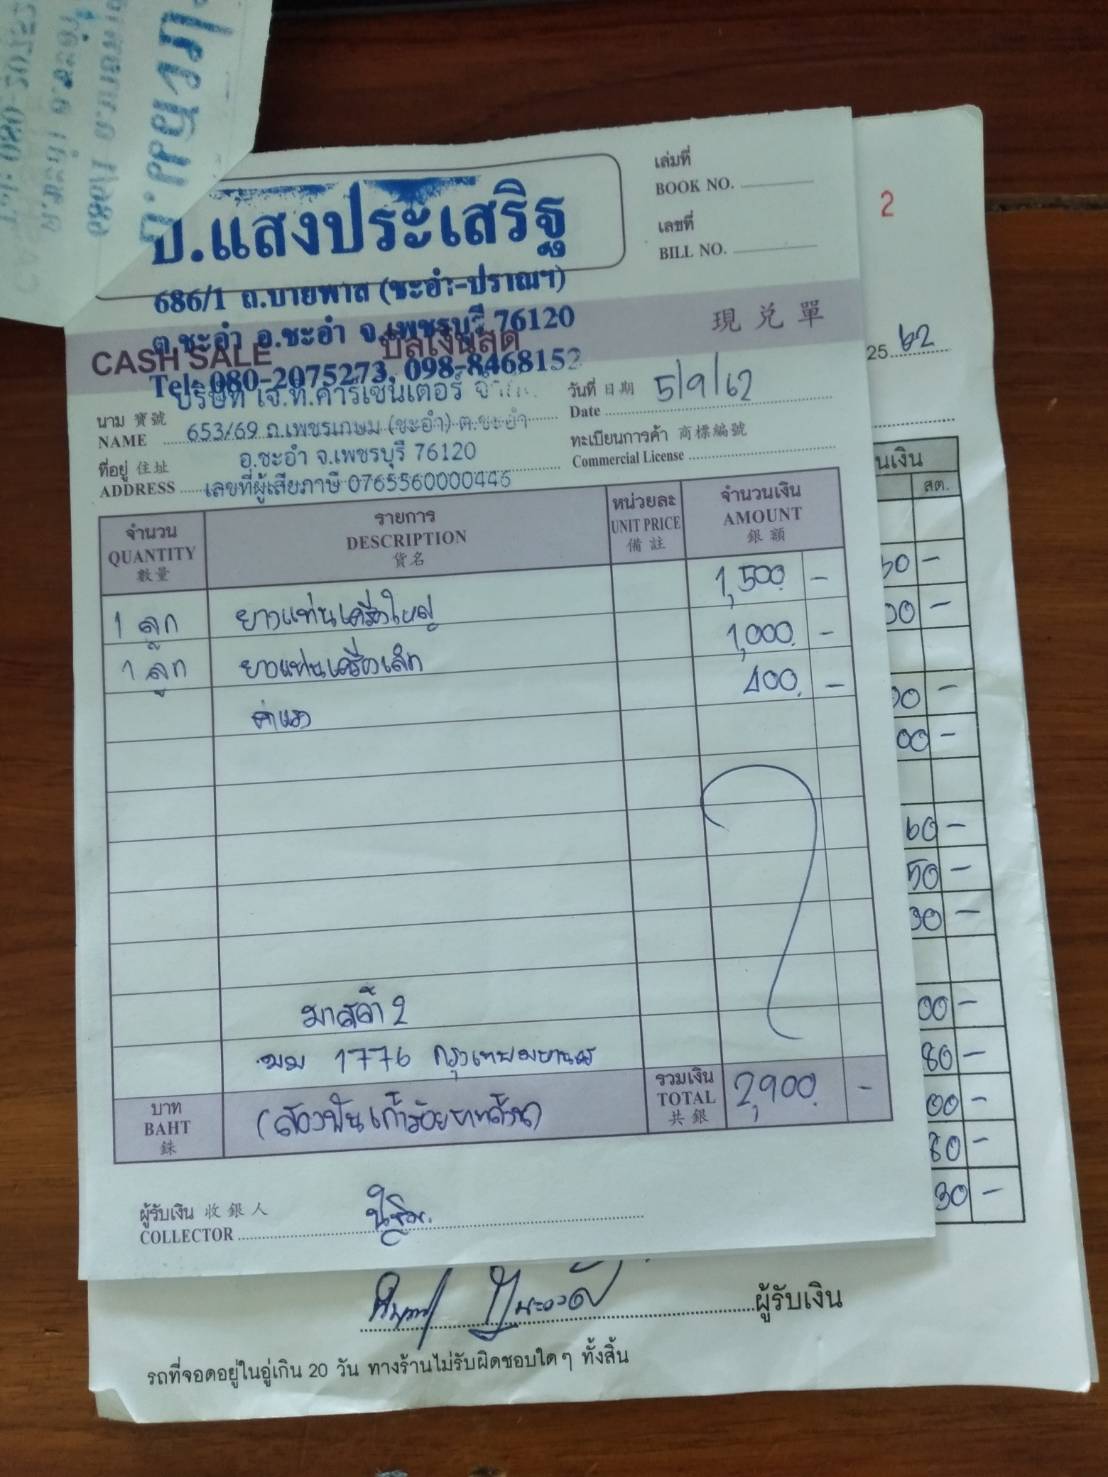 เล่มที่
BOOK NO.
เลขที่
BILL NO.
ป.แสงประเสริฐ
686/1 ถ.บายพาส (ชะอำ-ปราณฯ)
ต.ชะอำ อ.ชะอำ จ.เพชรบุรี 76120
Tel. 080-2075273, 098-8468152
CASH SALE บิลเงินสด 現兌單
บริษัท เจ.ที.คาร์เซ็นเตอร์
นาม 寶號
NAME 653/69 ถ.เพชรเกษม (ชะอำ) ต.ชะอำ
วันที่ 日期
Date 5/9/62
ที่อยู่ 住址
ADDRESS
อ.ชะอำ จ.เพชรบุรี 76120
เลขที่ผู้เสียภาษี 0765560000446
ทะเบียนการค้า 商標編號
Commercial License
จำนวน รายการ หน่วยละ จำนวนเงิน
QUANTITY DESCRIPTION UNIT PRICE AMOUNT
數量 貨名 備註 銀額
1 ลูก ยางแท่นเครื่องใหญ่ 1,500 -
1 ลูก ยางแท่นเครื่องเล็ก 1,000 -
ค่าแรง 400 -
มาสด้า 2
1776 กรุงเทพมหานคร
บาท
BAHT
銖
(สองพันเก้าร้อยบาทถ้วน)
รวมเงิน
TOTAL 2,900 -
共銀
ผู้รับเงิน 收銀人
COLLECTOR
2
25 62
นเงิน
สต.
50 -
00 -
00 -
00 -
60 -
50 -
30 -
00 -
80 -
00 -
80 -
30 -
ผู้รับเงิน
รถที่จอดอยู่ในอู่เกิน 20 วัน ทางร้านไม่รับผิดชอบใดๆ ทั้งสิ้น